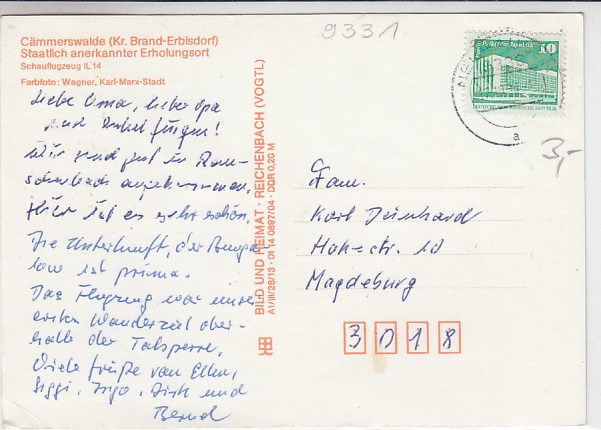 9331
Cämmerswalde (Kr. Brand-Erbisdorf)
Staatlich anerkannter Erholungsort
Schauflugzeug IL 14
Farbfoto: Wagner, Karl-Marx-Stadt
Liebe Oma, lieber Opa
und Onkel Jürgen!
Wir sind gut in
angekommen.
Hier ist es sehr schön.
Die Unterkunft, der Bunga-
low ist prima.
Das Flugzeug war unser
erstes Wanderziel ober-
halb der Talsperre.
Viele Grüße von Ellen,
Siggi, Ingo, Dirk und
Bernd
BILD UND HEIMAT · REICHENBACH (VOGTL)
A1/III/26/13 · 01 14 0697/04 · DDR 0,20 M
10
a
3,-
Fam.
Karl
10
Magdeburg
3018